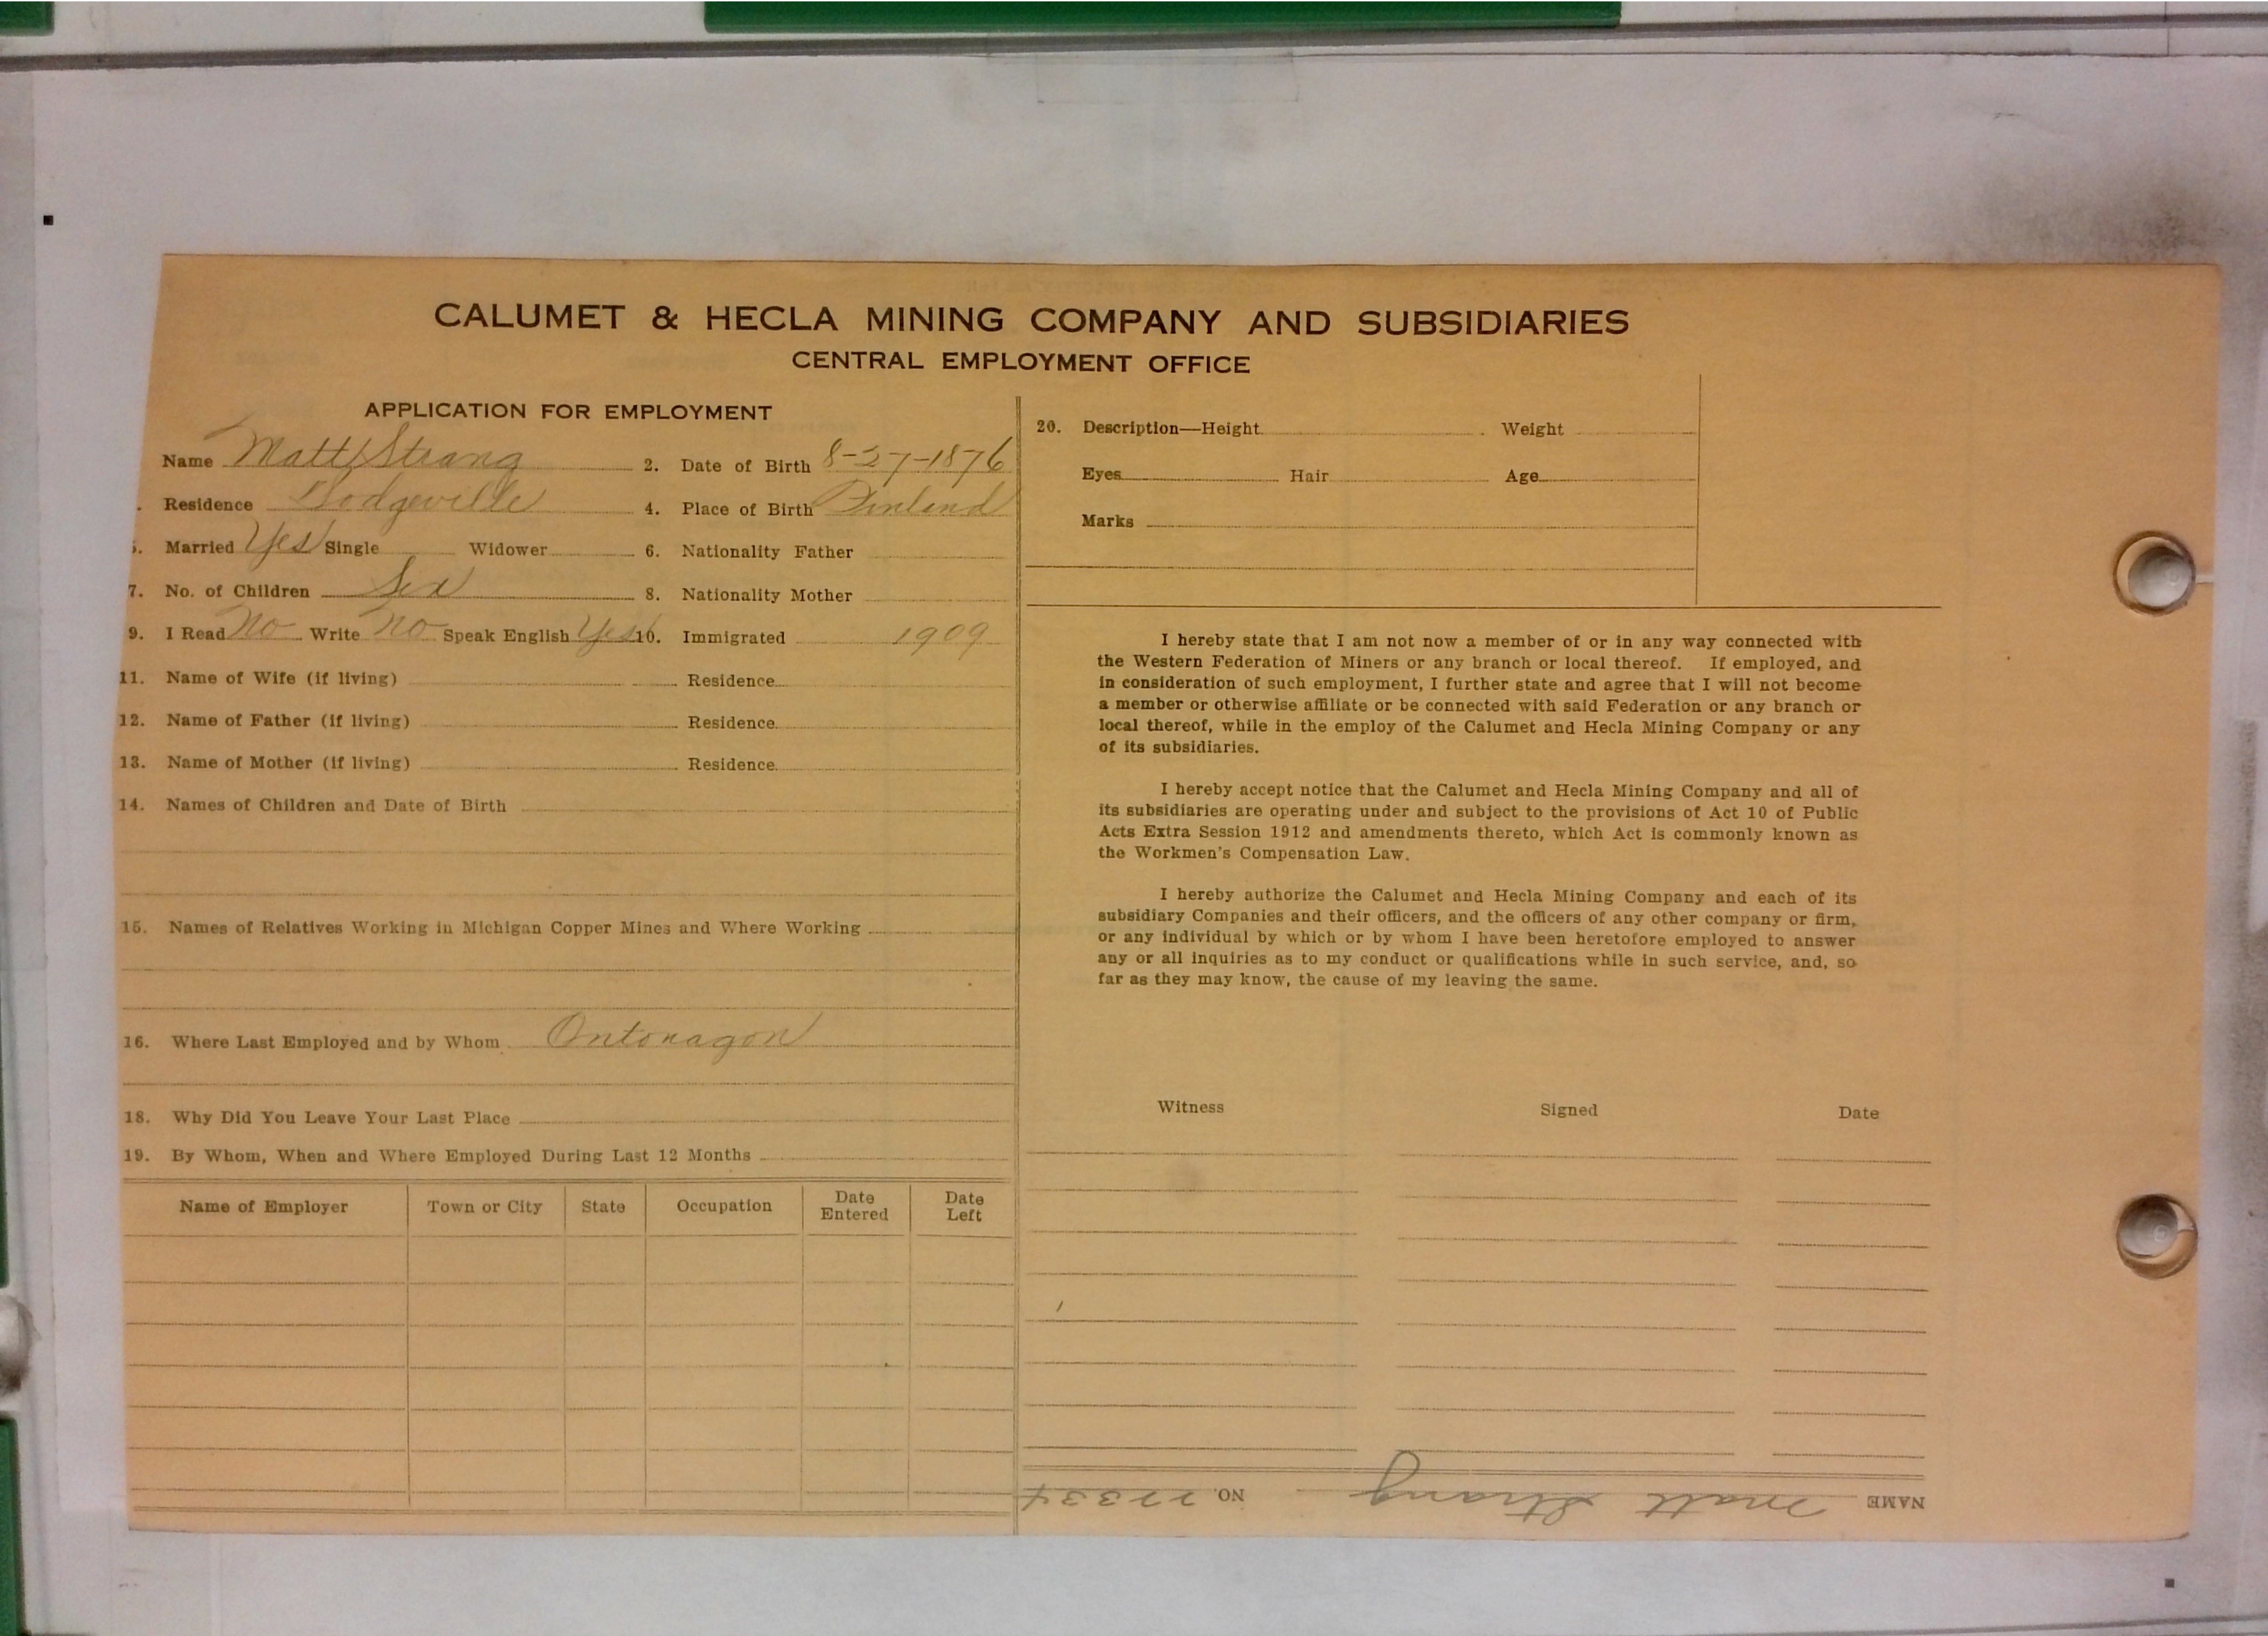 CALUMET & HECLA MINING COMPANY AND SUBSIDIARIES
CENTRAL EMPLOYMENT OFFICE
APPLICATION FOR EMPLOYMENT
Name Matt Strang 2. Date of Birth 8-27-1876
. Residence Dodgeville 4. Place of Birth Finland
5. Married Yes Single Widower 6. Nationality Father
7. No. of Children Six 8. Nationality Mother
9. I Read No Write No Speak English Yes 10. Immigrated 1909
11. Name of Wife (if living) Residence
12. Name of Father (if living) Residence
13. Name of Mother (if living) Residence
14. Names of Children and Date of Birth
15. Names of Relatives Working in Michigan Copper Mines and Where Working
16. Where Last Employed and by Whom Ontonagon
18. Why Did You Leave Your Last Place
19. By Whom, When and Where Employed During Last 12 Months
Name of Employer Town or City State Occupation Date Entered Date Left
20. Description—Height Weight
Eyes Hair Age
Marks
I hereby state that I am not now a member of or in any way connected with
the Western Federation of Miners or any branch or local thereof. If employed, and
in consideration of such employment, I further state and agree that I will not become
a member or otherwise affiliate or be connected with said Federation or any branch or
local thereof, while in the employ of the Calumet and Hecla Mining Company or any
of its subsidiaries.
I hereby accept notice that the Calumet and Hecla Mining Company and all of
its subsidiaries are operating under and subject to the provisions of Act 10 of Public
Acts Extra Session 1912 and amendments thereto, which Act is commonly known as
the Workmen's Compensation Law.
I hereby authorize the Calumet and Hecla Mining Company and each of its
subsidiary Companies and their officers, and the officers of any other company or firm,
or any individual by which or by whom I have been heretofore employed to answer
any or all inquiries as to my conduct or qualifications while in such service, and, so
far as they may know, the cause of my leaving the same.
Witness Signed Date
NAME Matt Strang NO.